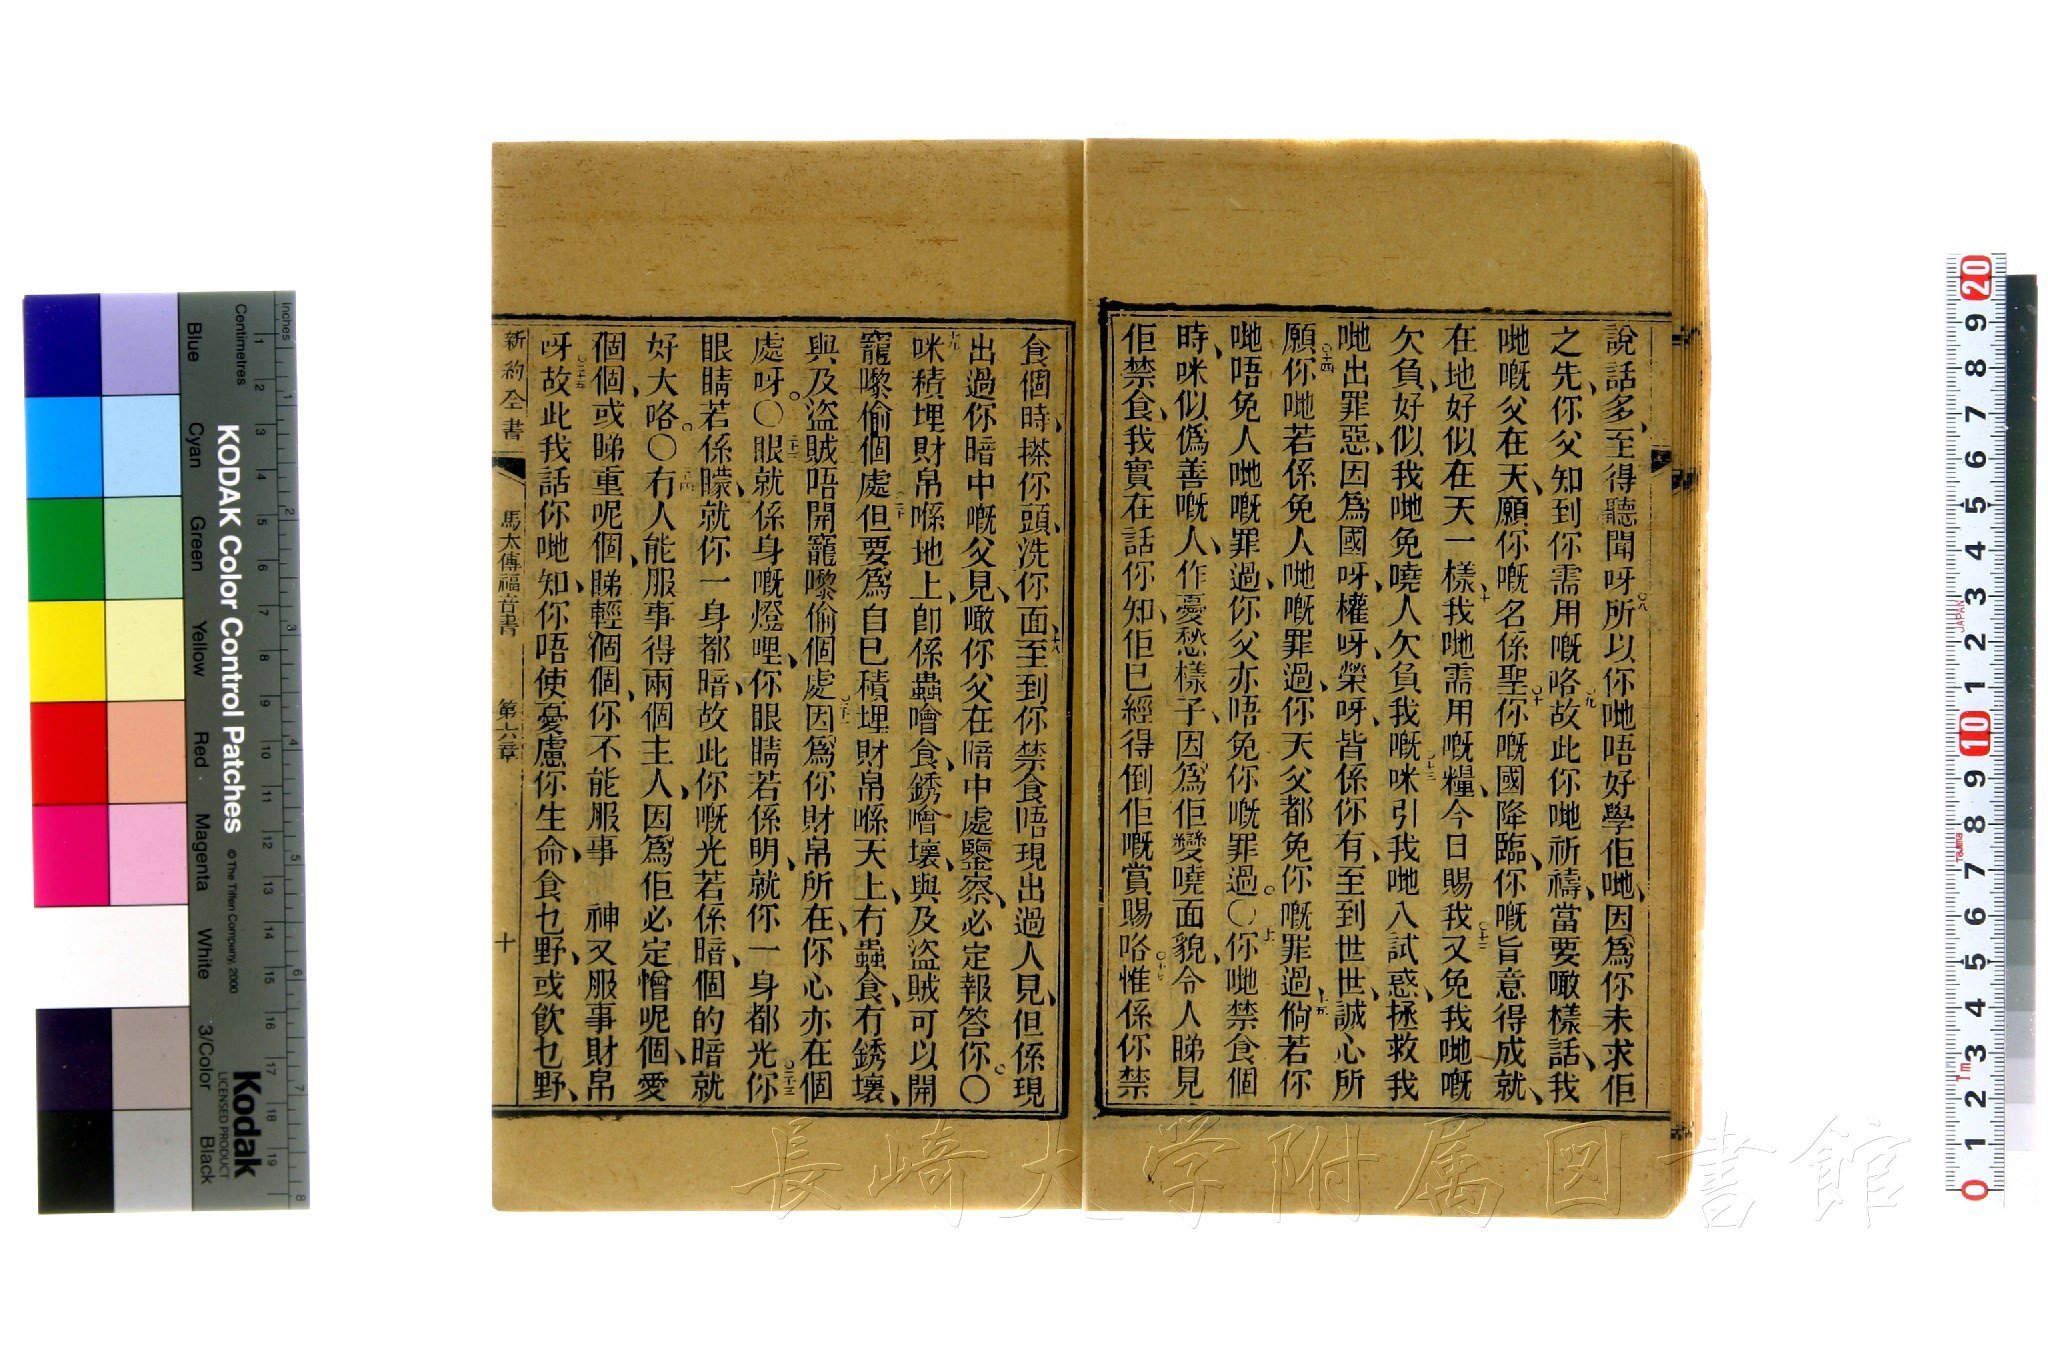 說話多、至得聽聞呀、所以你哋唔好學佢哋、因爲你未求佢
之先、你父知到你需用嘅咯、故此你哋祈禱、當要噉樣話、我
哋嘅父在天、願你嘅名係聖、你嘅國降臨、你嘅旨意得成就、
在地好似在天一樣、我哋需用嘅糧、今日賜我、又免我哋嘅
欠負、好似我哋免嘵人欠負我嘅、咪引我哋入試惑、拯救我
哋出罪惡、因爲國呀、權呀、榮呀、皆係你有、至到世世、誠心所
願、你哋若係免人哋嘅罪過、你天父都免你嘅罪過、倘若你
哋唔免人哋嘅罪過、你父亦唔免你嘅罪過。〇你哋禁食個
時、咪似僞善嘅人、作憂愁樣子、因爲佢變嘵面貌、令人睇見
佢禁食、我實在話你知、佢已經得倒佢嘅賞賜咯、惟係你禁
食個時、搽你頭、洗你面、至到你禁食唔現出過人見、但係現
出過你暗中嘅父見、噉你父在暗中處鑒察、必定報答你。〇
咪積埋財帛喺地上、卽係蟲噲食、銹噲壞、與及盜賊可以開
窿嚟偷個處、但要爲自己積埋財帛喺天上、冇蟲食、冇銹壞、
與及盜賊唔開窿嚟偷個處、因爲你財帛所在、你心亦在個
處呀。〇眼就係身嘅燈哩、你眼睛若係明、就你一身都光、你
眼睛若係矇、就你一身都暗、故此你嘅光若係暗、個的暗就
好大咯。〇冇人能服事得兩個主人、因爲佢必定憎呢個、愛
個個、或睇重呢個、睇輕個個、你不能服事 神又服事財帛
呀、故此我話你哋知、你唔使憂慮你生命、食乜野、或飲乜野、
新約全書 馬太傳福音書 第六章 十
長崎大学附属図書館
inches
Centimetres
KODAK Color Control Patches
© The Tiffen Company, 2000
Kodak
LICENSED PRODUCT
Blue
Cyan
Green
Yellow
Red
Magenta
White
3/Color
Black
JAPAN